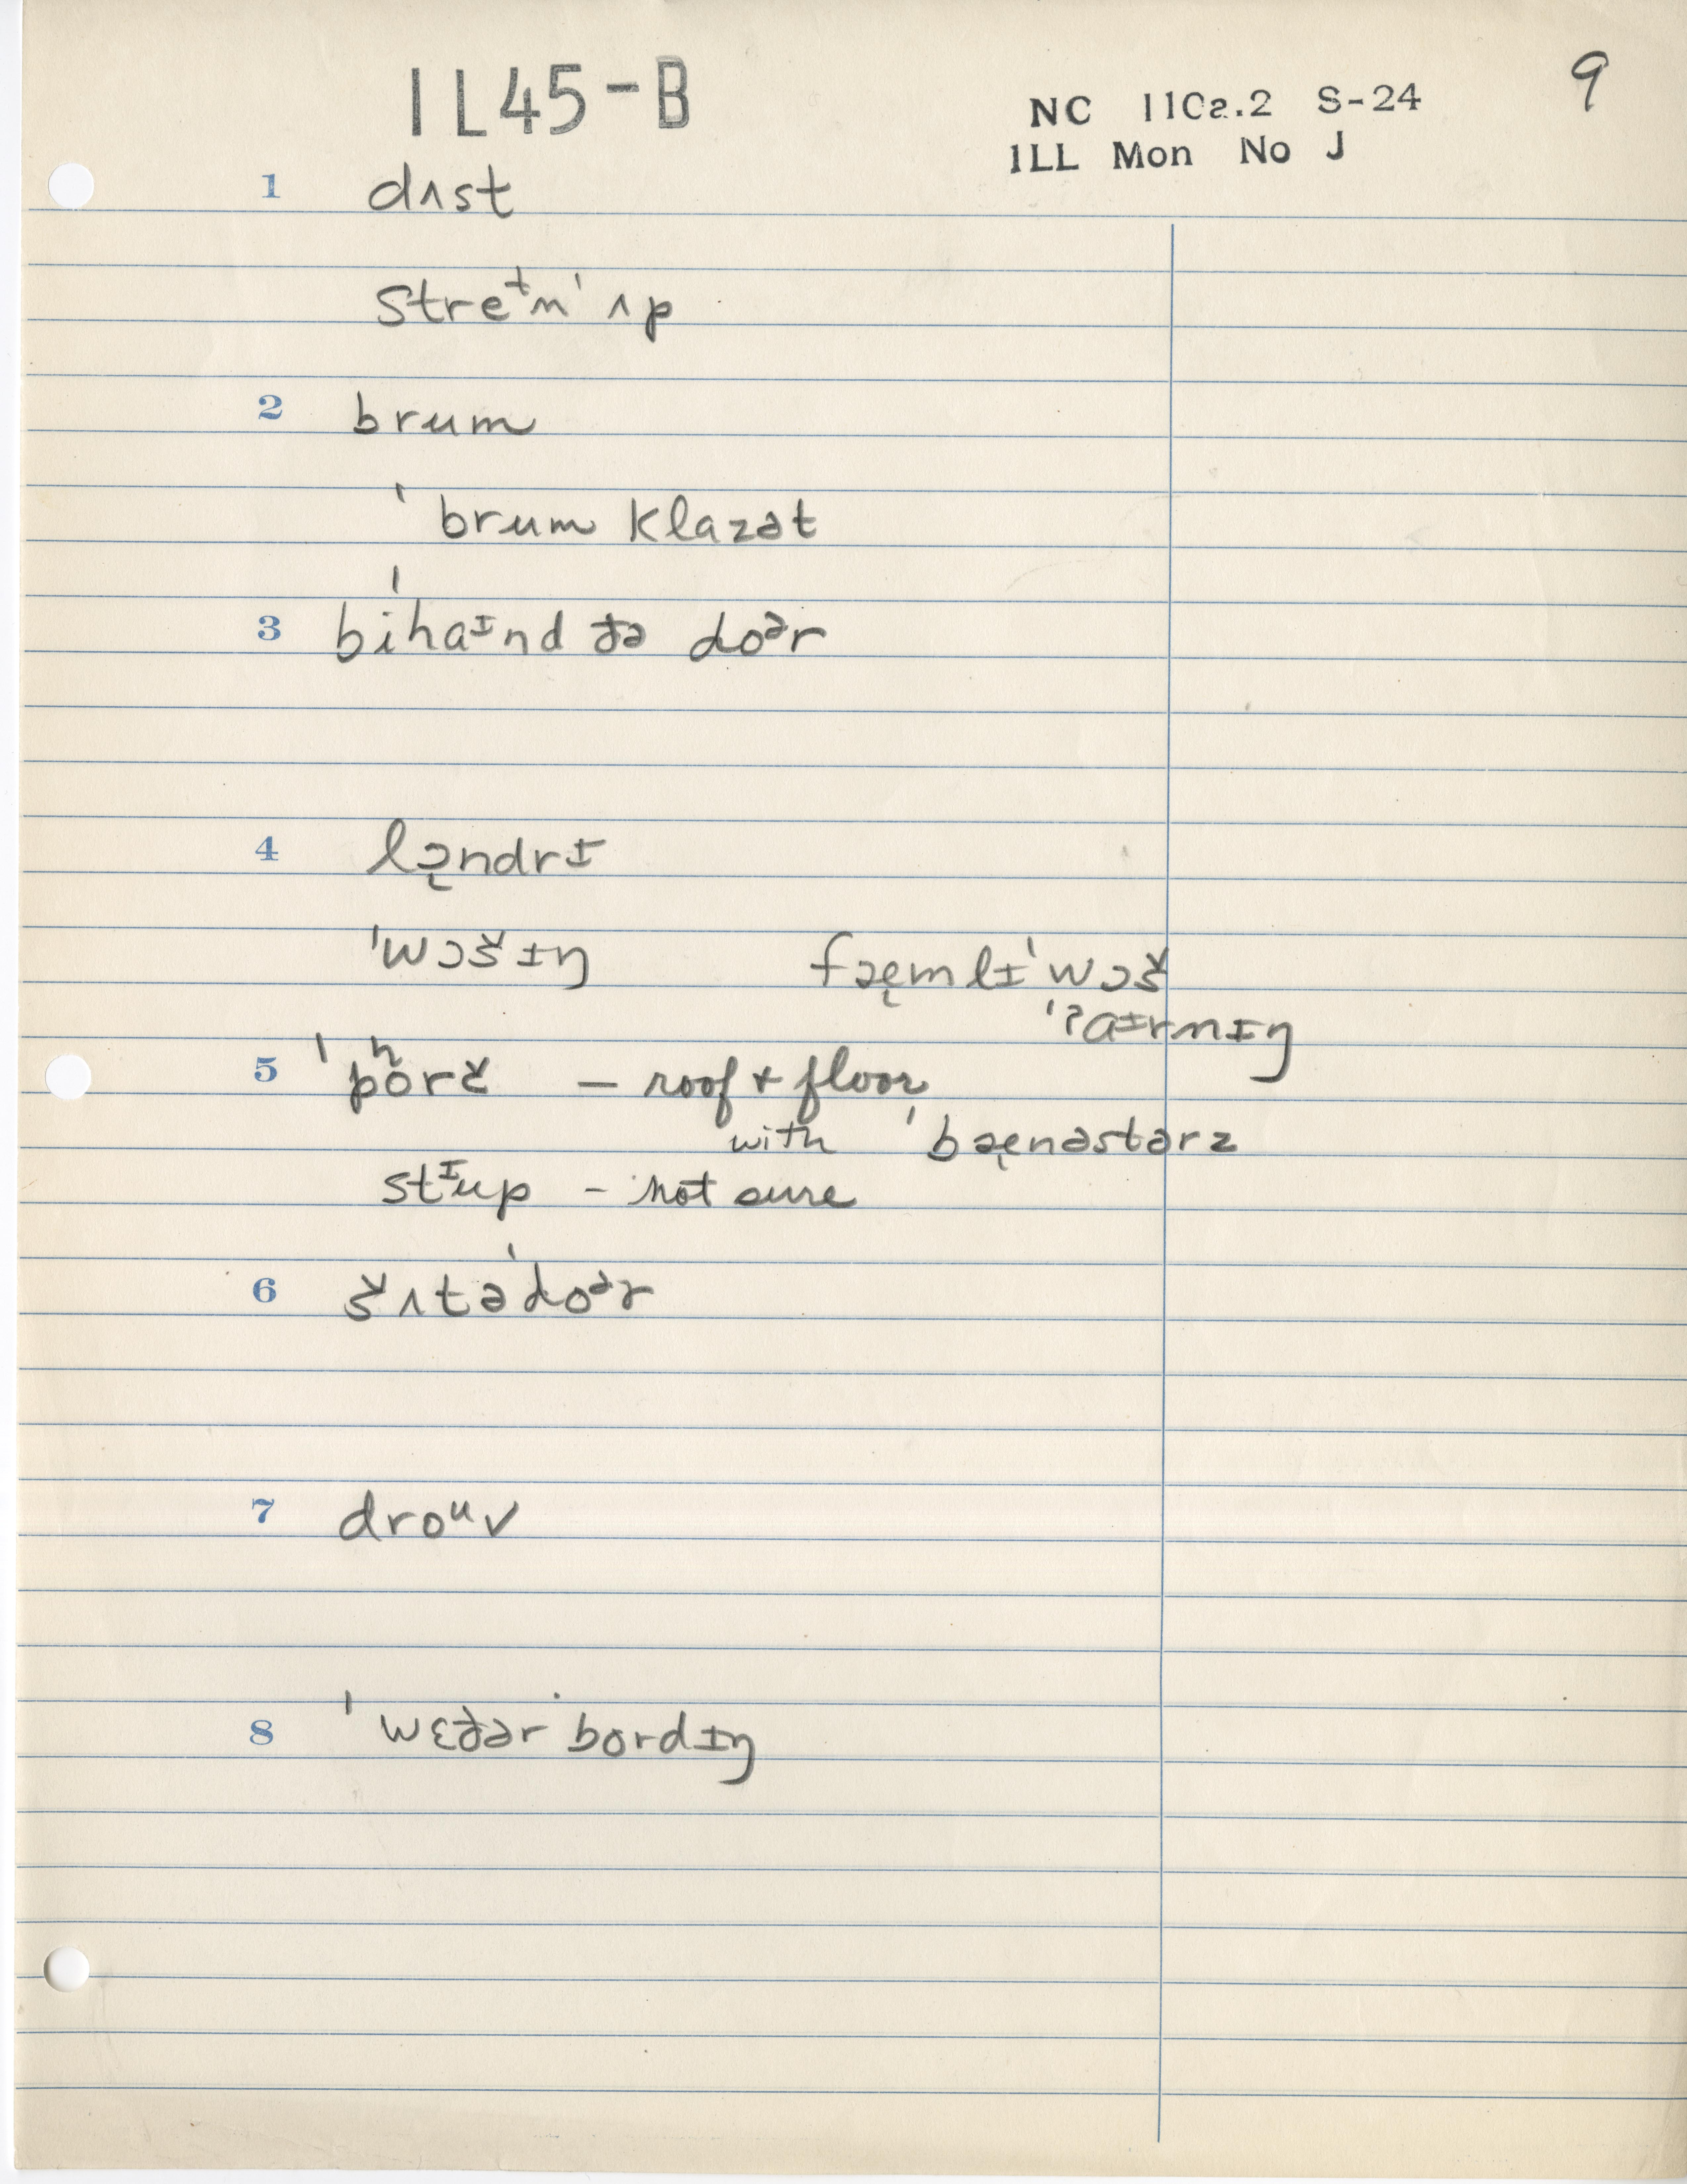 IL45-B
NC 110a.2 S-24
ILL Mon No J
9
1 dʌst
streᵗn' ʌp
2 brum
ˈbrum klazət
3 ˈbihaᶦnd ðə doᵊr
4 lɔ̨ndrɪ
ˈwɔšɪŋ fæ̨mlɪˈwɔš
ˈʔaɪrnɪŋ
5 ˈpʰorč – roof & floor
with ˈbæ̨nəstərz
stᶦup – not sure
6 šʌtəˈdoᵊr
7 droᵘv
8 ˈwɛðər bordɪŋ